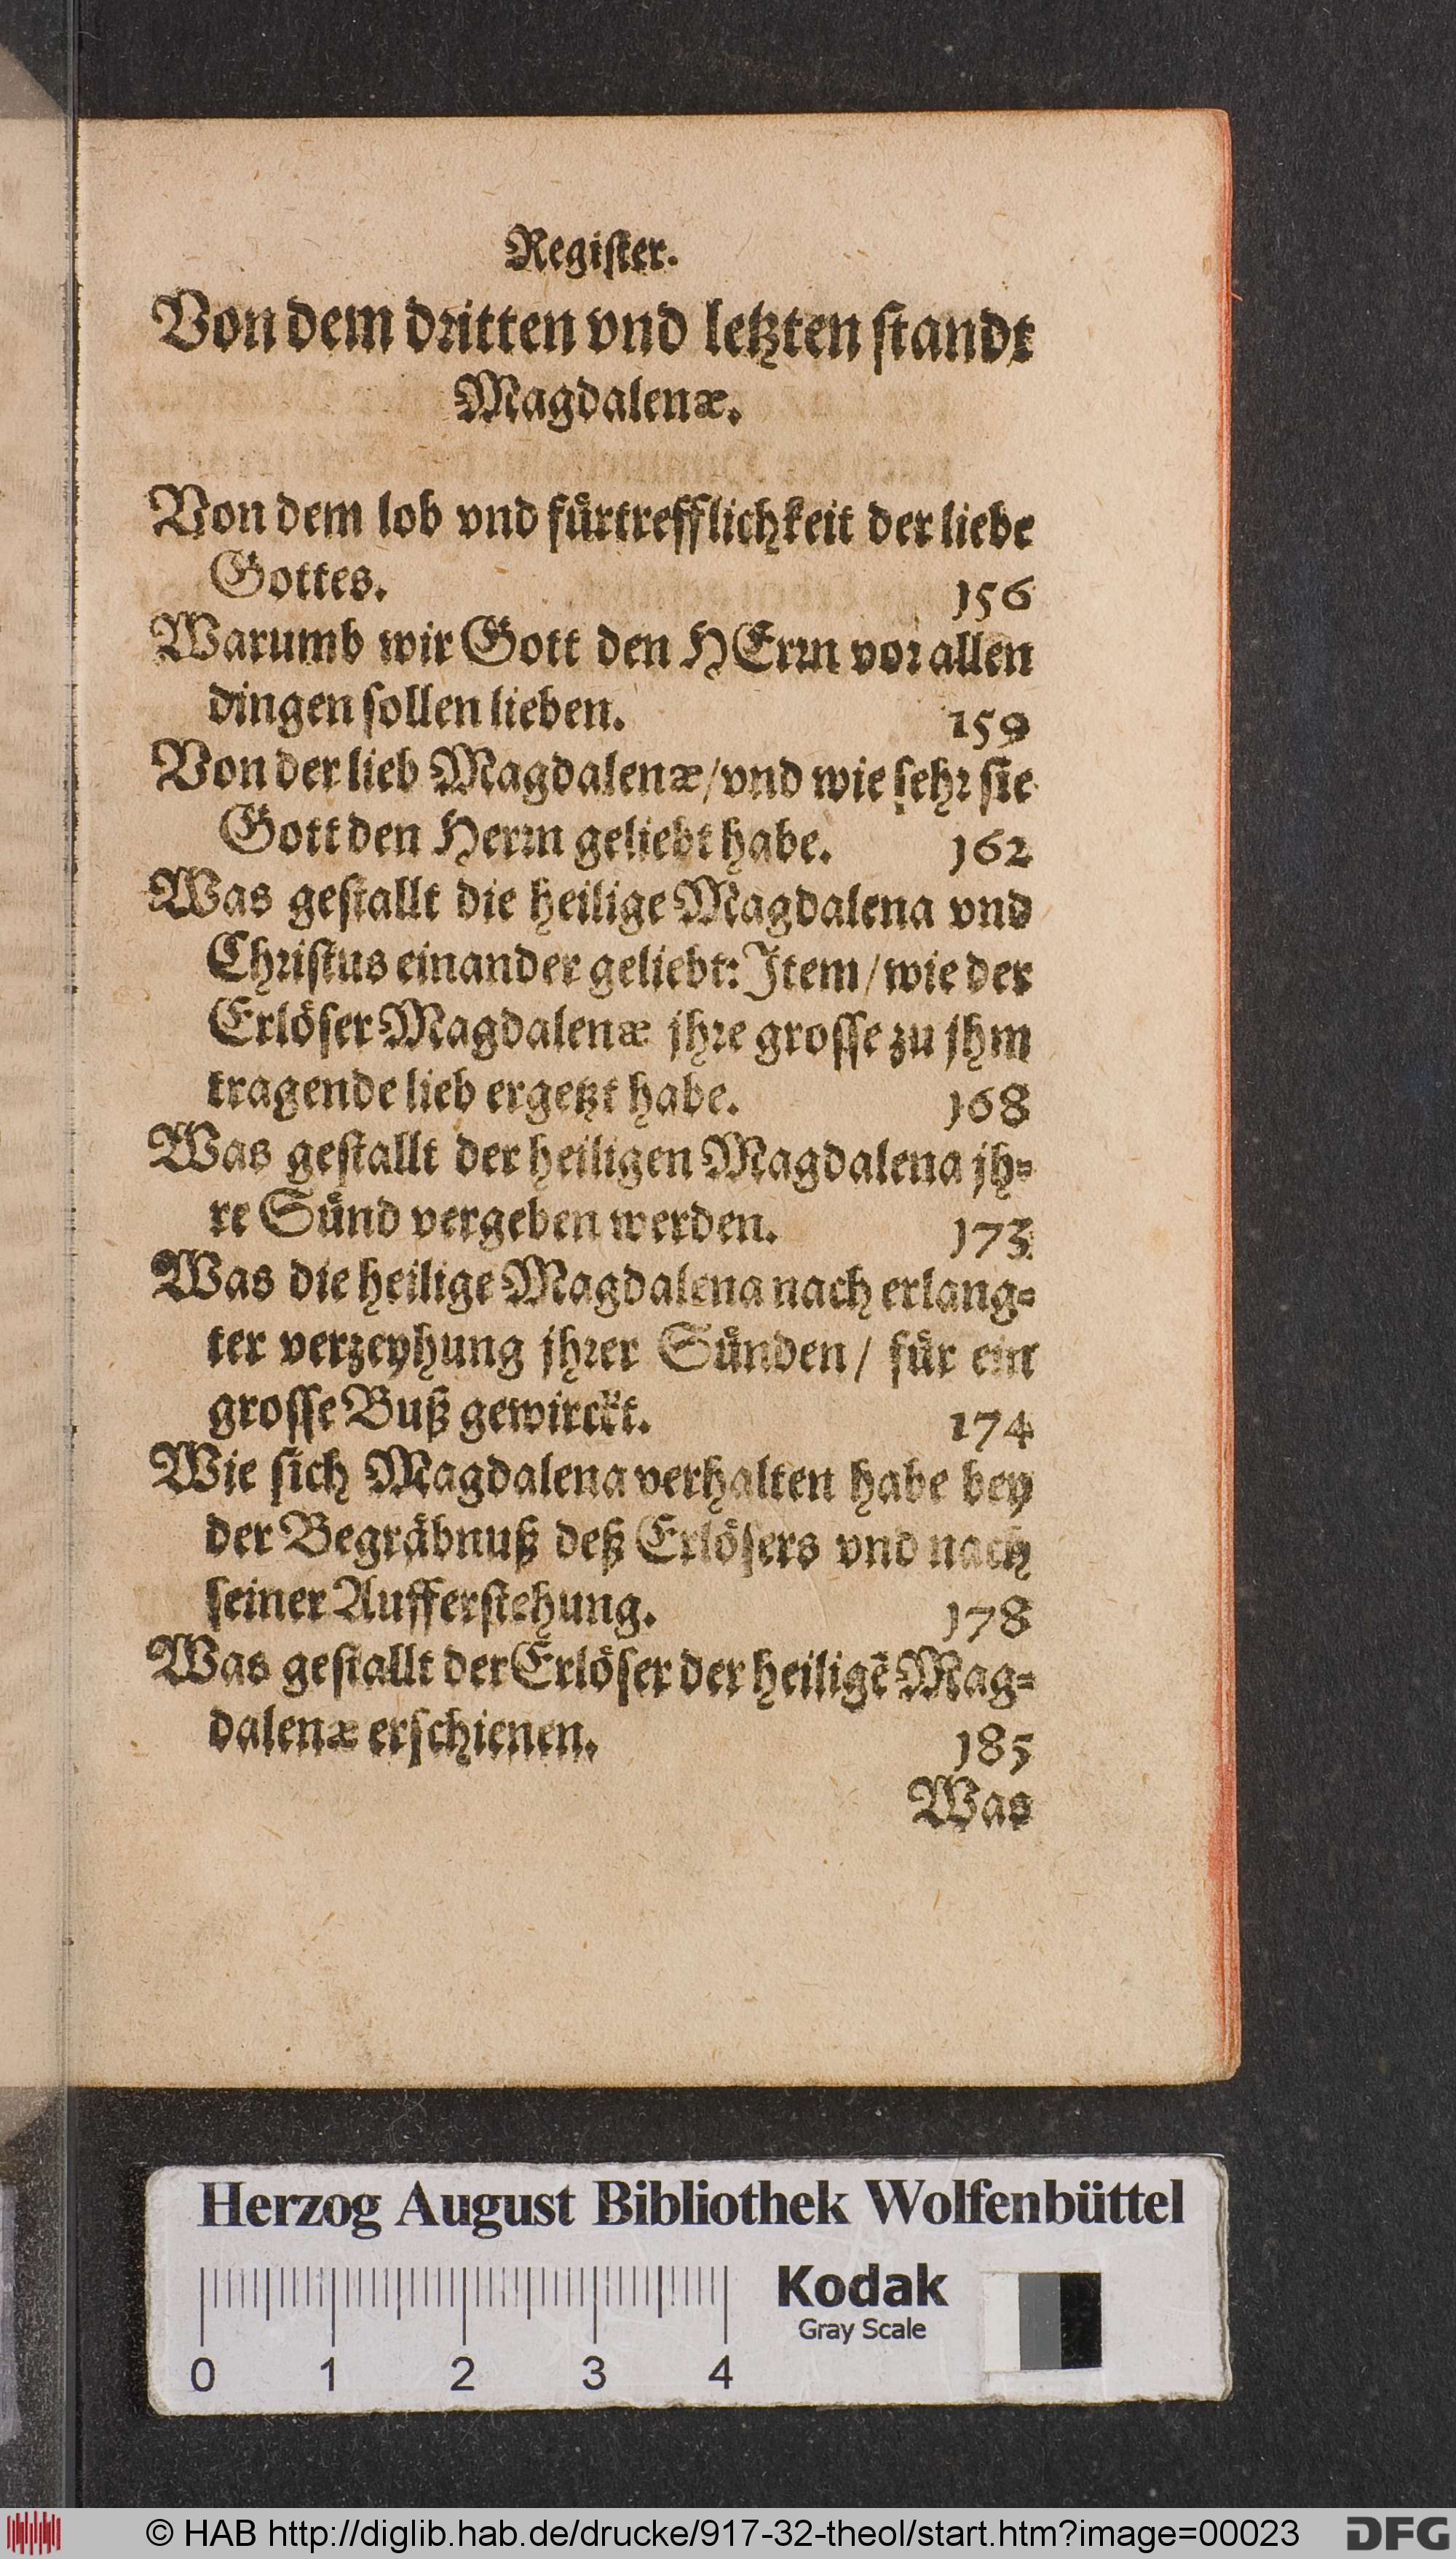 Regiſter.
Von dem dritten vnd letzten ſtandt
Magdalenæ.
Von dem lob vnd fürtrefflichkeit der liebe
Gottes. 156
Warumb wir Gott den HErrn vor allen
dingen ſollen lieben. 159
Von der lieb Magdalenæ/vnd wie ſehr ſie
Gott den Herrn geliebt habe. 162
Was geſtallt die heilige Magdalena vnd
Chriſtus einander geliebt: Item/wie der
Erlöſer Magdalenæ jhre groſſe zu jhm
tragende lieb ergetzt habe. 168
Was geſtallt der heiligen Magdalena jh-
re Sünd vergeben werden. 173
Was die heilige Magdalena nach erlang-
ter verzeyhung jhrer Sünden/ für ein
groſſe Buß gewirckt. 174
Wie ſich Magdalena verhalten habe bey
der Begräbnuß deß Erlöſers vnd nach
ſeiner Aufferſtehung. 178
Was geſtallt der Erlöſer der heiligē Mag-
dalenæ erſchienen. 185
Was
Herzog August Bibliothek Wolfenbüttel
Kodak
Gray Scale
0 1 2 3 4
© HAB http://diglib.hab.de/drucke/917-32-theol/start.htm?image=00023
DFG